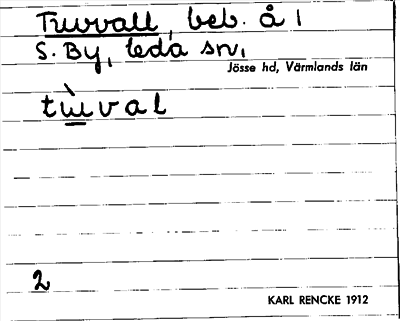 Tuvvall, beb. å 1
S. By, Eda sn,
Jösse hd, Värmlands län
tùval
2
KARL RENCKE 1912